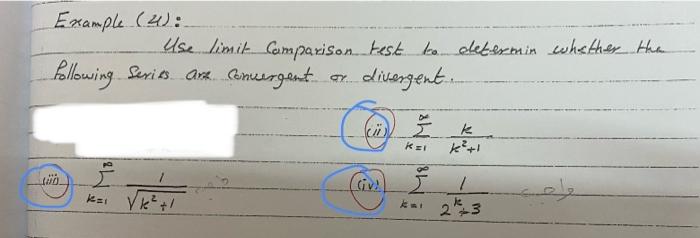 Example (4):
Use limit Comparison test to determin whether the
following Series are Convergent or divergent.
(ii) ∞ Σ k=1 k / k²+1
(iii) ∞ Σ k=1 1 / √k²+1
(iv) ∞ Σ k=1 1 / 2ᵏ+3